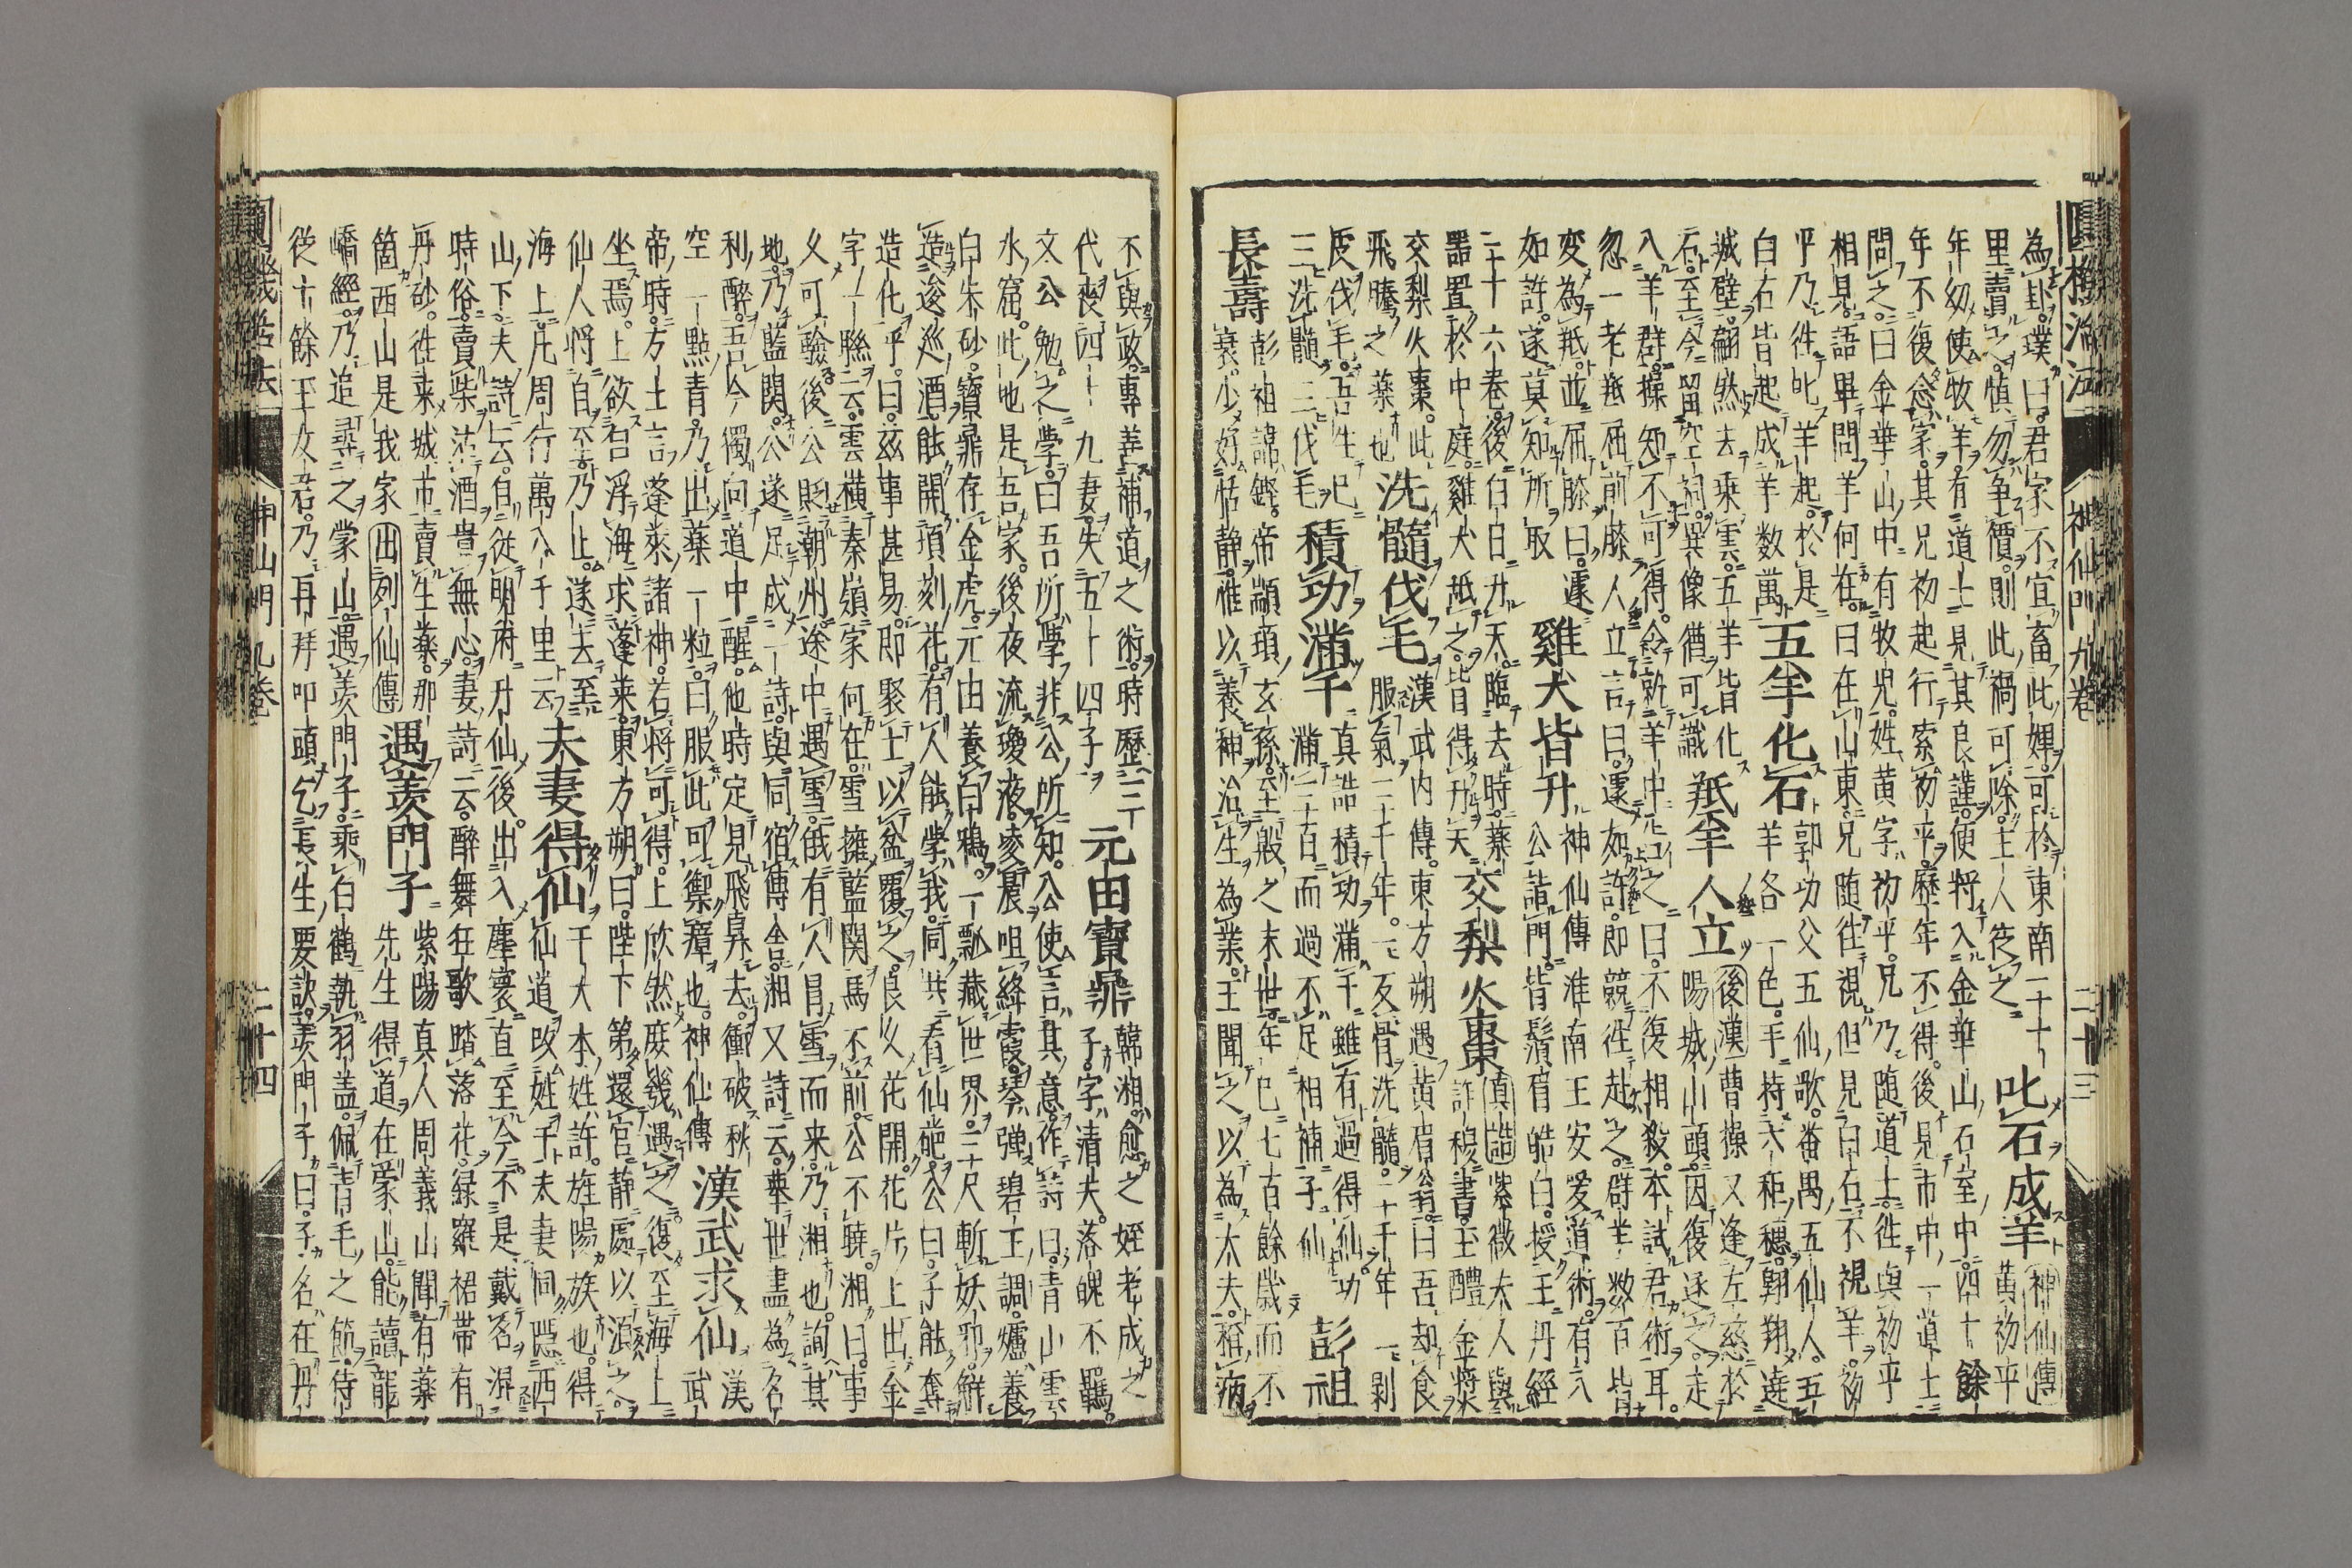 圓機活法 神仙門九卷 二十三
為卦璞曰君家不宜畜此婢可於東南二十
里賣之慎勿争價則此禍可除主人従之
叱石成羊
神仙傳 黄初平
年幼使牧羊有道士見其良謹便将入金華山石室中四十餘
年不復念家其兄初起行索初平歴年不得後見市中一道士
問之曰金華山中有牧児姓黄字初平兄乃随道士徃與初平
相見語畢問羊何在曰在山東兄随徃視但見白石不視羊初
平乃徃叱羊起於是
白石皆起成羊数萬
五羊化石
郭功父五仙歌番禺五仙人五
羊各一色手持六秬穗翱翔遶
城壁翩然去乘雲五羊皆化
石至今留空祠異像猶可識
羝羊人立
後漢曹操又逢左慈於
陽城山頭因復逐之走
入羊群操知不可得令就羊中告之曰不復相殺本試君術耳
忽一老羝屈前膝人立言曰遽如許即競徃赴之群羊数百皆
変為羝並屈膝曰遽
如許遂莫知所取
雞犬皆升
神仙傳淮南王安愛道術有八
公詣門皆鬚眉皓白授王丹經
三十六卷後白日升天臨去時薬
器置於中庭雞犬舐之皆得升天
交梨火棗
真誥紫微夫人與
許穆書玉醴金漿
交梨火棗此
飛騰之薬也
洗髓伐毛
漢武内傳東方朔遇黄眉翁曰吾却食
服氣三千年一反骨洗髓二千年一剥
皮伐毛吾生已
三洗髓三伐毛
積功満千
真誥積功満千雖有過得仙功
満三百而過不足相補子仙
彭祖
長壽
彭祖諱鏗帝顓頊玄孫至殷之末世年已七百餘歳而不
衰少好恬静惟以養神治生為業王聞之以為大夫稱病
不與政専善補道之術時歴三
代喪四十九妻失五十四子
元由寳鼎
韓湘愈之姪老成之
子字清夫落魄不羈
文公勉之學曰吾所學非公所知公使言其意作詩曰青山雲
水窟此地是吾家後夜流瓊液凌晨咀絳霞琴弾碧玉調爐養
白朱砂寶鼎存金虎元由養白鴉一瓢藏世界三尺斬妖邪觧
造逡巡酒能開頃刻花有人能學我同共看仙葩公曰子能奪
造化乎曰茲事甚易即聚土以盆覆之良久花開花片上出金
字一聯云雲横秦嶺家何在雪擁藍関馬不前公不曉湘曰事
久可驗後公貶潮州途中遇雪俄有人冐雪而来乃湘也詢其
地乃藍関公遂足成一詩與同宿傳舎湘又詩云舉世盡為名
利醉吾今獨向道中醒他時定見飛昇去衝破秋
空一點青乃出薬一粒曰服此可禦瘴也神仙傳
漢武求仙
漢
武
帝時方士言蓬莱諸神若将可得上欣然庶幾遇之復至海上
坐焉上欲召浮海求蓬莱東方朔曰陛下第還宮静處以須之
仙人将自至乃止遂去至
海上凡周行萬八千里云
夫妻得仙
千大本姓許旌陽族也得
仙道改姓于夫妻同隠西
山下夫詩云自従明府升仙後出入塵寰直至今不是戴名混
時俗賣柴沽酒貴無心妻詩云醉舞狂歌踏落花緑羅裙帯有
丹砂徃来城市賣生薬那
箇西山是我家 出列仙傳
遇羡門子
紫陽真人周義山聞有薬
先生得道在蒙山能讀龍
嶠經乃追尋之蒙山遇羡門子乘白鶴執羽盖佩青毛之節侍
従十餘玉女君乃再拜叩頭乞長生要訣羡門子曰子名在丹
圓機活法 神仙門九卷 二十四